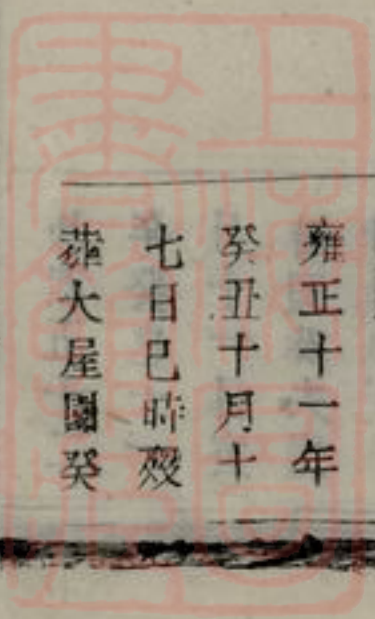 雍正十一年
癸丑十月十
七日巳時歿
葬大屋園癸